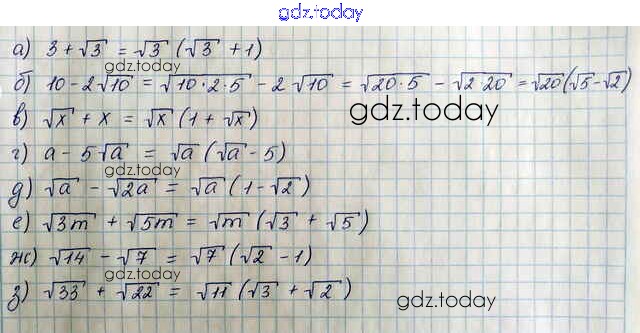 gdz.today
а) 3 + √3 = √3 (√3 + 1)
gdz.today
б) 10 - 2√10 = √10·2·5 - 2√10 = √20·5 - √2 20 = √20(√5-√2)
gdz.today
в) √x + x = √x (1 + √x)
г) a - 5√a = √a (√a - 5)
gdz.today
д) √a - √2a = √a (1-√2)
е) √3m + √5m = √m (√3 + √5)
gdz.today
ж) √14 - √7 = √7 (√2 - 1)
gdz.today
з) √33 + √22 = √11 (√3 + √2)
gdz.today